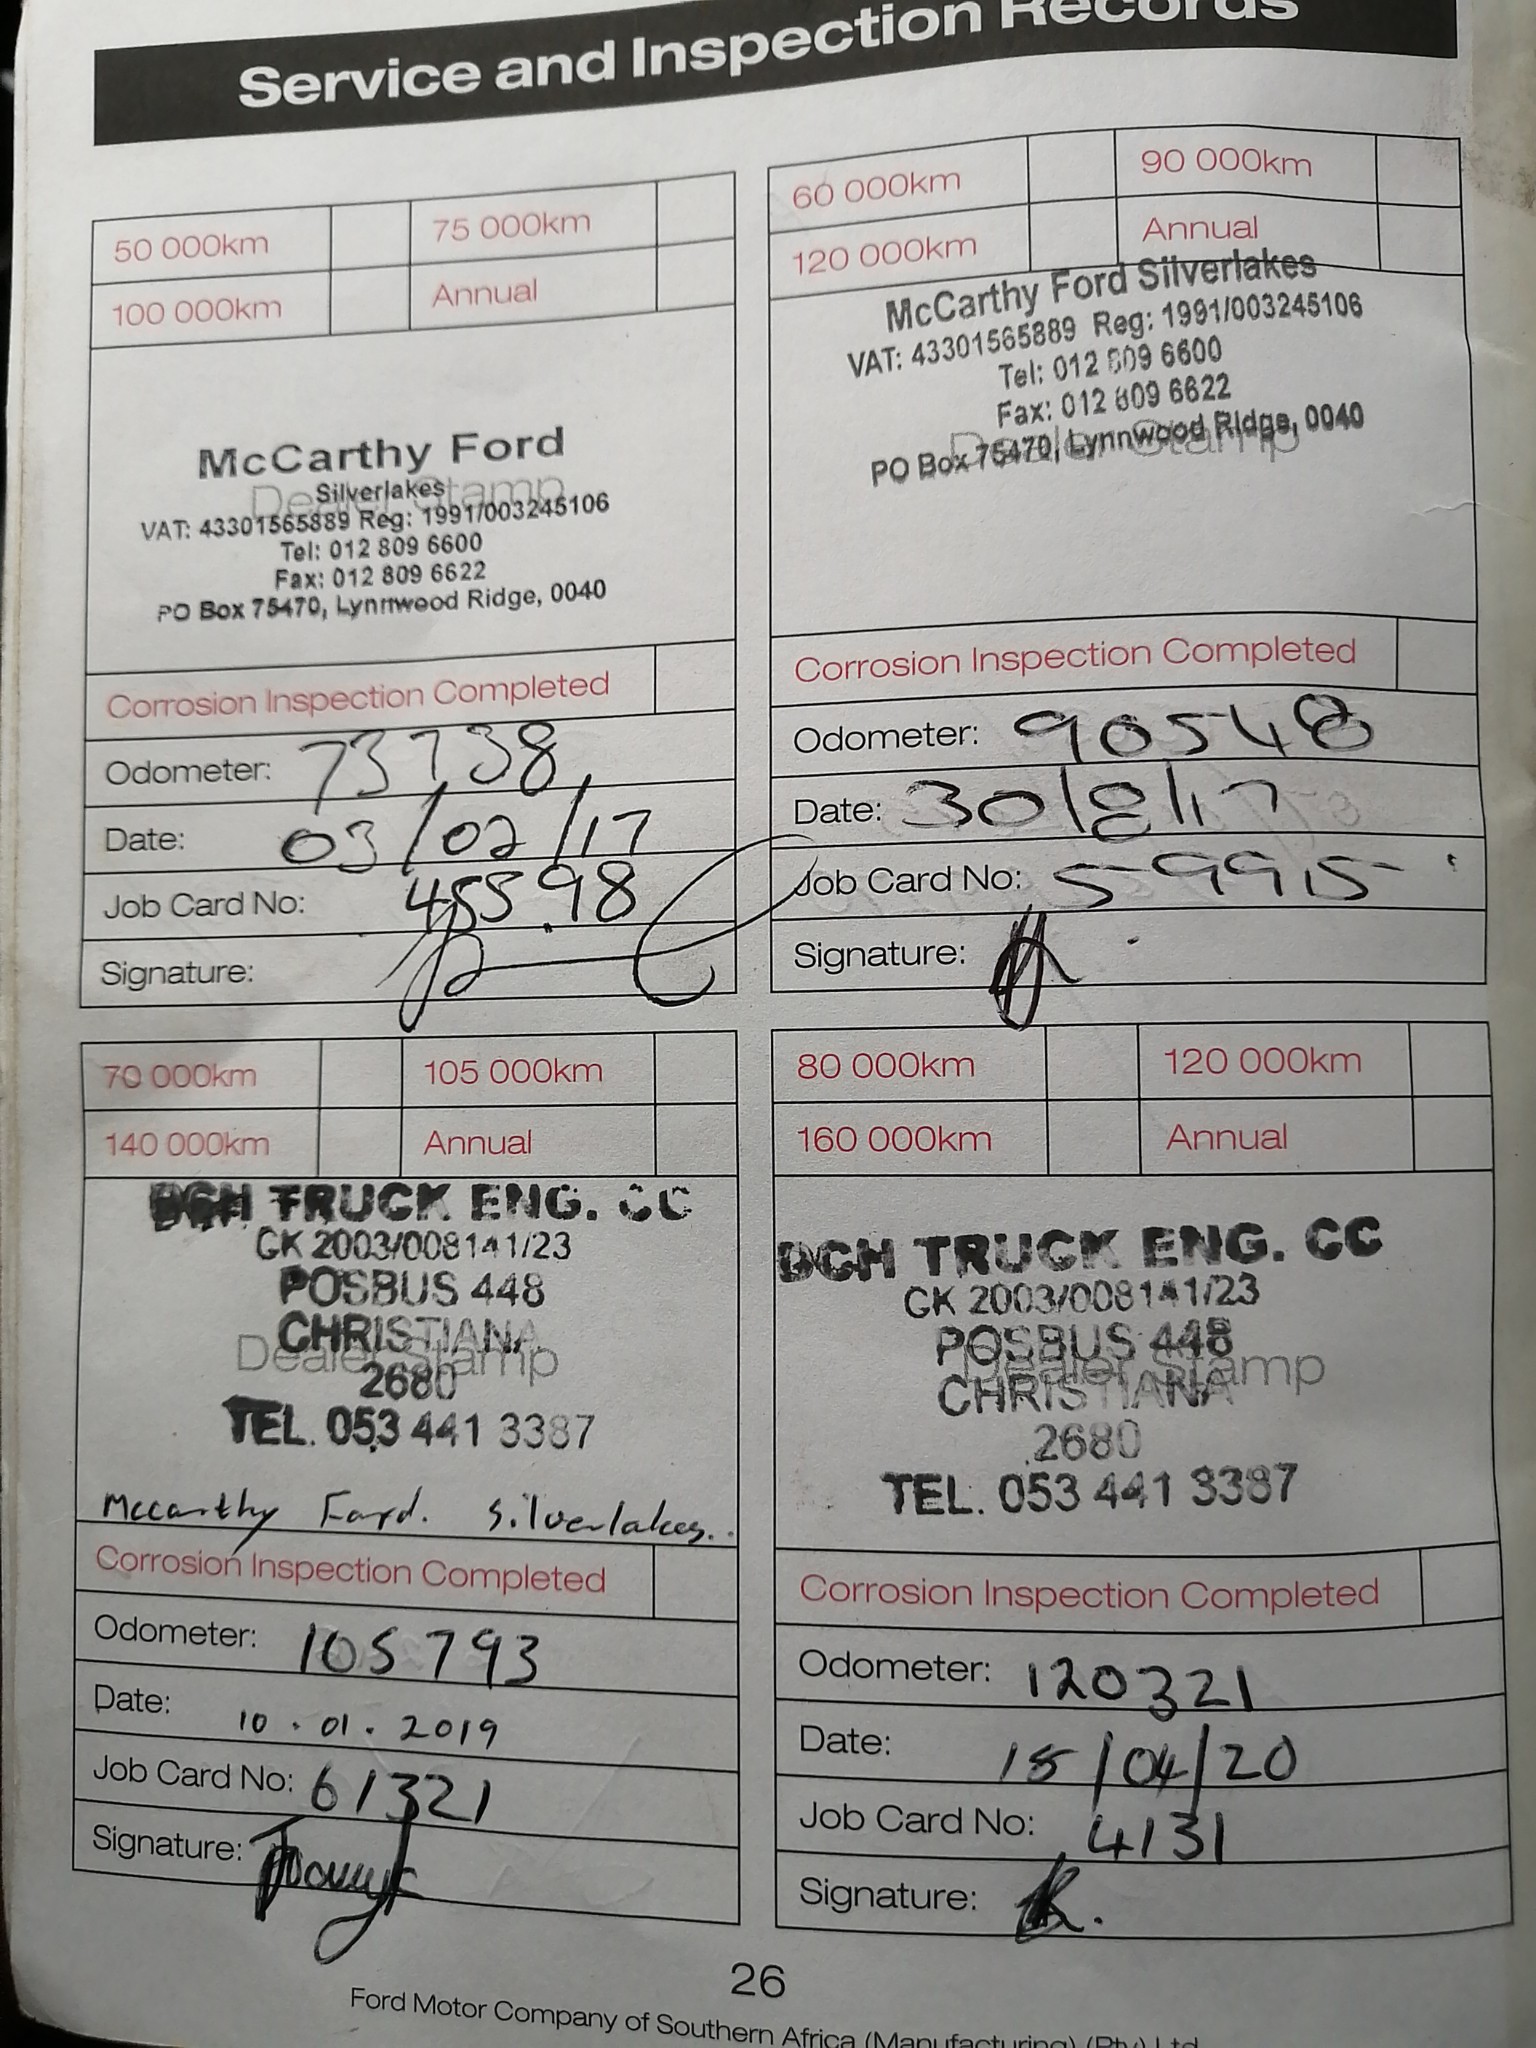 Service and Inspection Records
50 000km
75 000km
100 000km
Annual
McCarthy Ford
Dealer Stamp
Silverlakes
VAT: 43301565889 Reg: 1991/003245106
Tel: 012 809 6600
Fax: 012 809 6622
PO Box 75470, Lynnwood Ridge, 0040
Corrosion Inspection Completed
Odometer: 73738
Date: 03/02/17
Job Card No: 45598
Signature:
60 000km
90 000km
120 000km
Annual
McCarthy Ford Silverlakes
VAT: 43301565889 Reg: 1991/003245106
Tel: 012 809 6600
Fax: 012 809 6622
Dealer Stamp
PO Box 75470, Lynnwood Ridge, 0040
Corrosion Inspection Completed
Odometer: 90548
Date: 30/8/17
Job Card No: 59915
Signature:
70 000km
105 000km
140 000km
Annual
DCH TRUCK ENG. CC
CK 2003/008141/23
POSBUS 448
CHRISTIANA
Dealer Stamp
2680
TEL. 053 441 3387
Mccarthy Ford. Silverlakes..
Corrosion Inspection Completed
Odometer: 105793
Date: 10.01.2019
Job Card No: 61321
Signature:
80 000km
120 000km
160 000km
Annual
DCH TRUCK ENG. CC
CK 2003/008141/23
POSBUS 448
Dealer Stamp
CHRISTIANA
2680
TEL. 053 441 3387
Corrosion Inspection Completed
Odometer: 120321
Date: 15/04/20
Job Card No: 4131
Signature:
26
Ford Motor Company of Southern Africa (Manufacturing) (Pty) Ltd